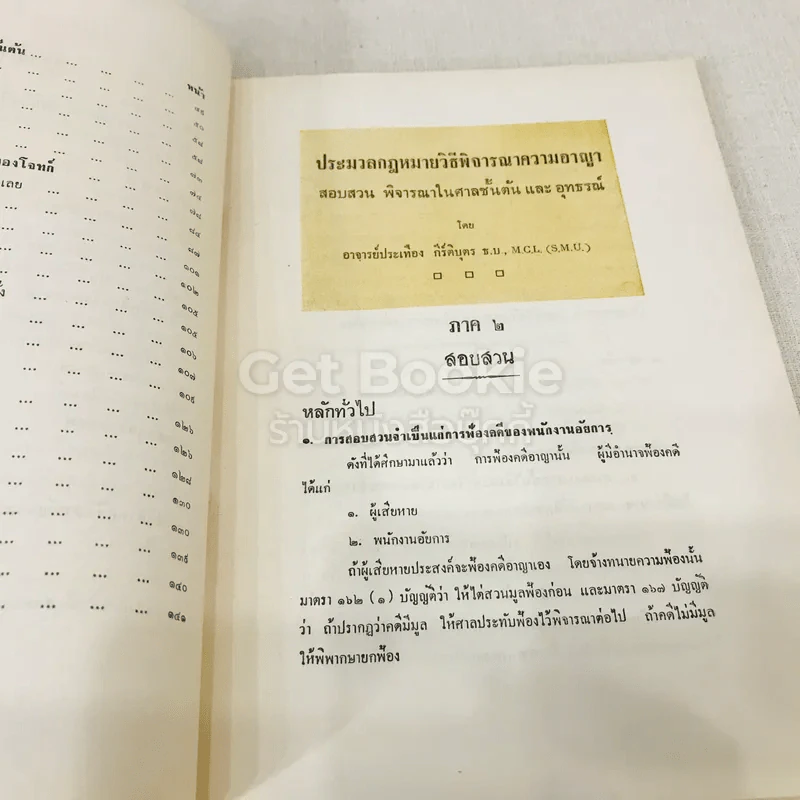 หน้า
๕๐
๕๘
๗๑
ของโจทก์
๗๔
๗๘
๘๔
๘๗
๑๐๑
๑๐๒
๑๐๕
๑๐๕
๑๐๖
๑๐๗
๑๒๖
๑๒๖
๑๒๘
๑๓๐
๑๓๐
๑๔๐
๑๔๑
ประมวลกฎหมายวิธีพิจารณาความอาญา
สอบสวน พิจารณาในศาลชั้นต้น และ อุทธรณ์
โดย
อาจารย์ประเทือง กีรติบุตร ธ.บ., M.C.L. (S.M.U.)
ภาค ๒
สอบสวน
Get Bookie
ร้านหนังสือบุ๊คกี้
หลักทั่วไป
๑. การสอบสวนจำเป็นแก่การฟ้องคดีของพนักงานอัยการ
ดังที่ได้ศึกษามาแล้วว่า การฟ้องคดีอาญานั้น ผู้มีอำนาจฟ้องคดี
ได้แก่
๑. ผู้เสียหาย
๒. พนักงานอัยการ
ถ้าผู้เสียหายประสงค์จะฟ้องคดีอาญาเอง โดยจ้างทนายความฟ้องนั้น
มาตรา ๑๖๒ (๑) บัญญัติว่า ให้ไต่สวนมูลฟ้องก่อน และมาตรา ๑๖๗ บัญญัติ
ว่า ถ้าปรากฏว่าคดีมีมูล ให้ศาลประทับฟ้องไว้พิจารณาต่อไป ถ้าคดีไม่มีมูล
ให้พิพากษายกฟ้อง